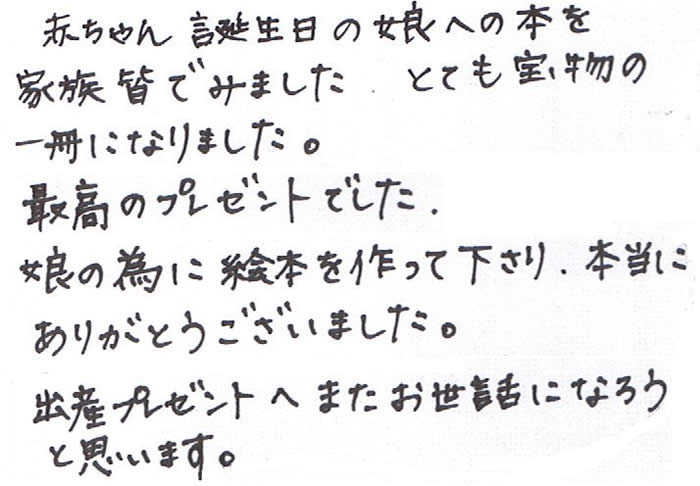 赤ちゃん誕生日の娘への本を
家族皆でみました. とても宝物の
一冊になりました。
最高のプレゼントでした.
娘の為に絵本を作って下さり. 本当に
ありがとうございました。
出産プレゼントへまたお世話になろう
と思います。